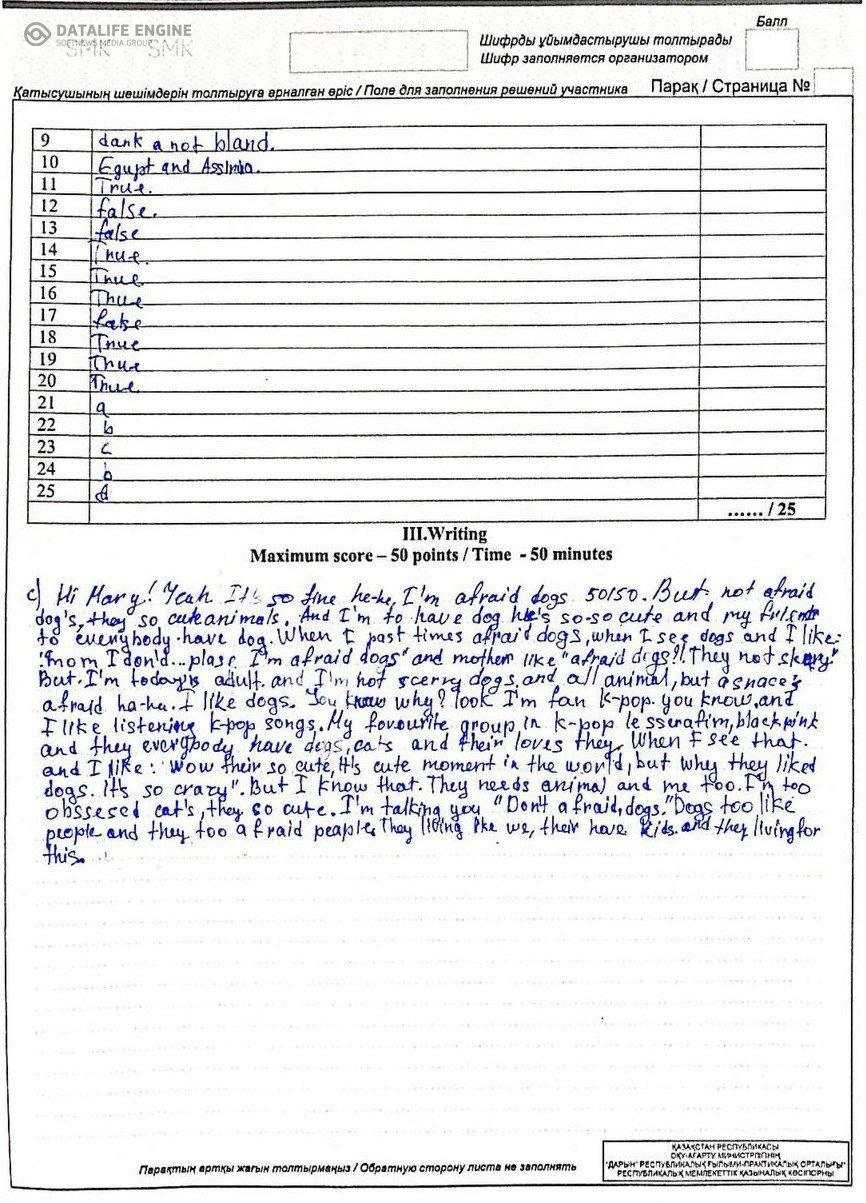 DATALIFE ENGINE
SOFTNEWS MEDIA GROUP
SMK SMK
Балл
Шифрды ұйымдастырушы толтырады
Шифр заполняется организатором
Қатысушының шешімдерін толтыруға арналған өріс / Поле для заполнения решений участника
Парақ / Страница №
9 dank a not bland.
10 Egupt and
11 True.
12 false.
13 false
14 True.
15 True
16 True
17 false
18 True
19 True
20 True.
21 a
22 b
23 c
24 b
25 d
...... / 25
III.Writing
Maximum score – 50 points / Time - 50 minutes
c) Hi Mary! Yeah It's so fine he-he, I'm afraid dogs 50/50. But not afraid
dog's, they so cute animals. And I'm to have dog he's so-so cute and my friends
to everybody have dog. When I past times afraid dogs, when I see dogs and I like:
"mom I don'd... plase I'm afraid dogs" and mother like "afraid dogs?! They not skary"
But I'm today's adult and I'm not scerry dogs, and all animal, but a snace's
afraid ha-ha. I like dogs. You know why? look I'm fan k-pop you know, and
I like listening k-pop songs. My fovourite group in k-pop le sserafim, blackpink
and they everybody have dogs, cats and their loves they. When I see that.
and I like: "Wow their so cute, it's cute moment in the world, but why they liked
dogs. It's so crazy". But I know that. They needs animal and me too. I'm too
obssesed cat's, they so cute. I'm talking you "Don't afraid, dogs." Dogs too like
people and they too afraid peaple. They living like we, their have kids and they living for
this.
Парақтың артқы жағын толтырмаңыз / Обратную сторону листа не заполнять
ҚАЗАҚСТАН РЕСПУБЛИКАСЫ
ОҚУ-АҒАРТУ МИНИСТРЛІГІНІҢ
"ДАРЫН" РЕСПУБЛИКАЛЫҚ ҒЫЛЫМИ-ПРАКТИКАЛЫҚ ОРТАЛЫҒЫ"
РЕСПУБЛИКАЛЫҚ МЕМЛЕКЕТТІК ҚАЗЫНАЛЫҚ КӘСІПОРНЫ